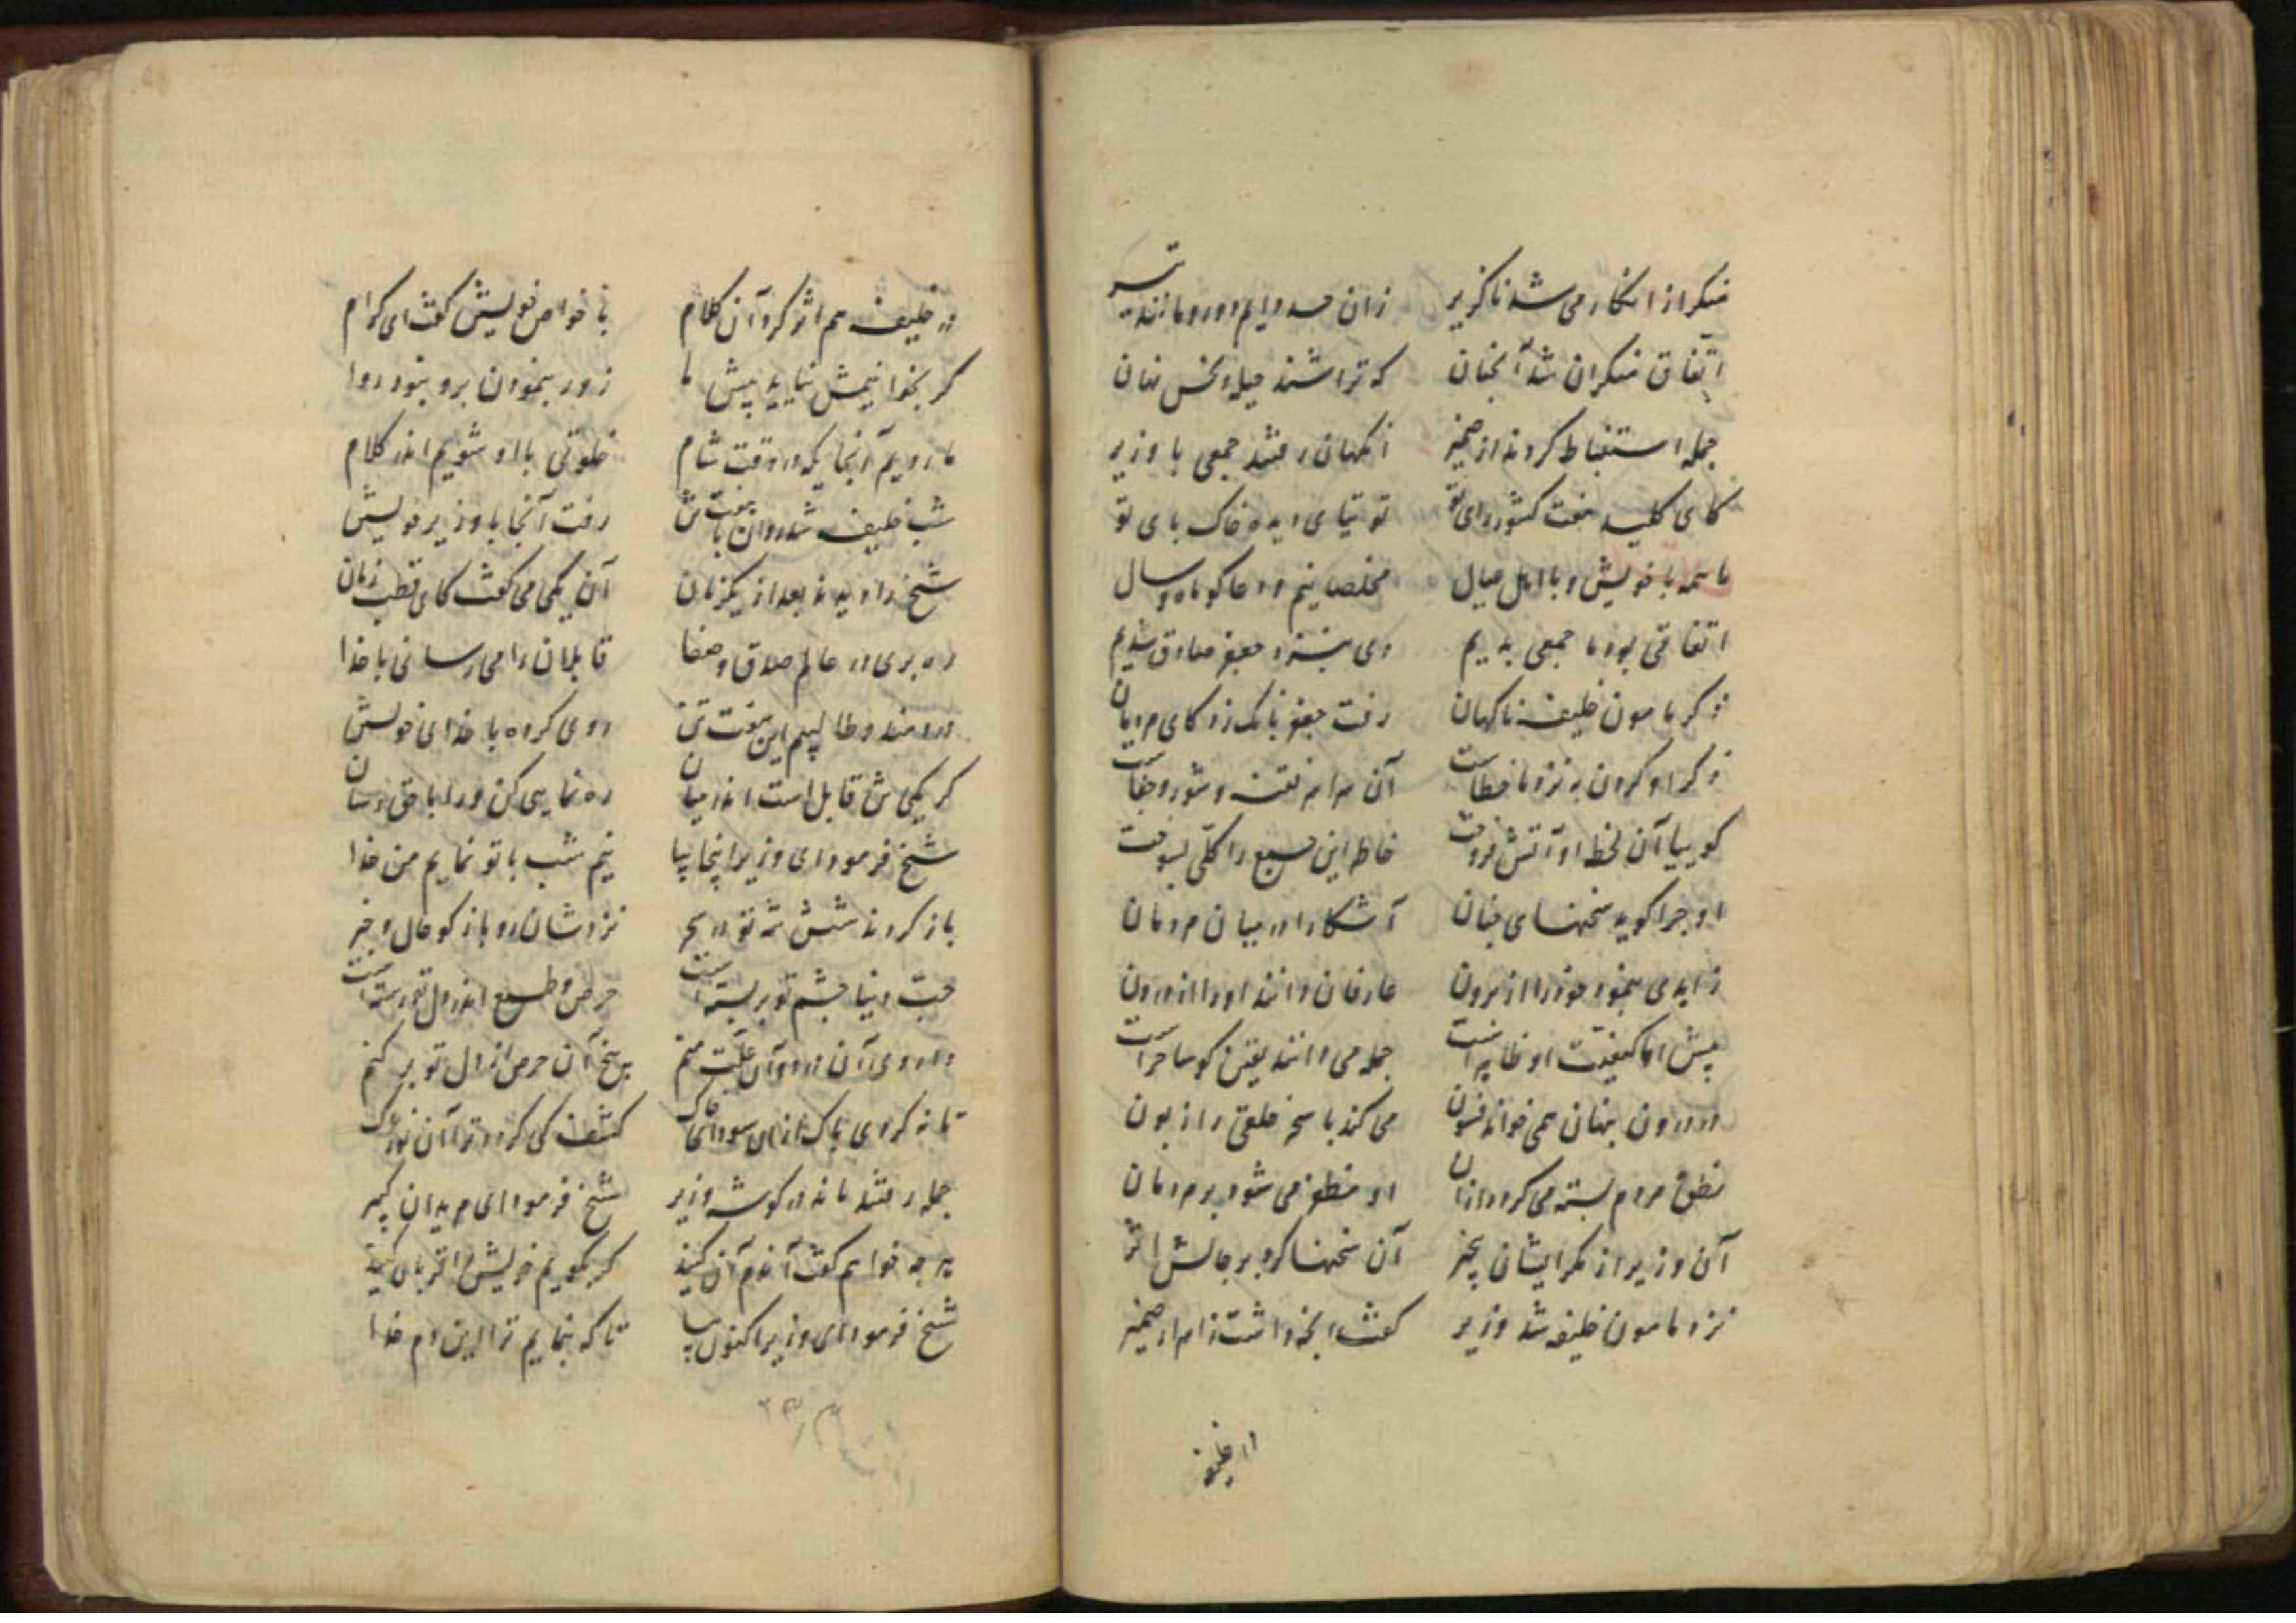 منکر از انکار می شد ناگزیر
اتفاق منکران شد آنچنان که تراشند حیله نهان
جمله استنباط کردند از ضمیر ناگهان رفتند جمعی با وزیر
کای کلید هفت کشور رای تو توتیای دیده خاک پای تو
ما همه با خویش و با اهل و عیال مخلصانیم و دعاگو ماه و سال
اتفاقی بود ما جمعی بدیم دی بنزد جعفر صادق شدیم
ذکر مامون خلیفه ناگهان رفت جعفر بانک زد کای مردمان
ذکر او کردن به نزد ما خطاست آن سراسر فتنه و شور و جفاست
گوییا آن لحظه او آتش فروخت خاطر این جمع را کلی بسوخت
او چرا گوید سخنهای چنان آشکارا در میان مردمان
زاهدی بنمود خود را از برون عارفان دانند او را از درون
پیش ما کیفیت او ظاهر است جمله می دانند یقین کو ساحر است
در درون پنهان همی خواند فسون می کند با سحر خلقی را زبون
نطق مردم بسته می گردد از آن او مظفر می شود بر مردمان
آن وزیر از مکر ایشان بیخبر آن سخنها کرد بر جانش اثر
نزد مامون خلیفه شد وزیر گفت آنچه داشت از ضمیر
در خلیفه
در خلیفه هم اثر کرد آن کلام با خواص خویش گفت ای کرام
گر بخوانیمش نیاید پیش ما زور بنمودن برو نبود روا
ما رویم آنجایکه در وقت شام خلوتی با او شویم اندر کلام
شب خلیفه شد روان با هفت تن رفت آنجا با وزیر خویش
شیخ را دیدند بعد از یکزمان آن یکی می گفت کای قطب زمان
رهبری در عالم صدق و صفا قابلان را می رسانی با خدا
دردمند و طالبیم این هفت تن روی کرده با خدای خویش
گر یکی شان قابل است اندر میان ره نمایی کن ورا با حق رسان
شیخ فرمود ای وزیر اینجا بیا نیم شب با تو نمایم من خدا
باز کردند شش تن تو در سحر نزدشان رو باز گو حال و خبر
حب دنیا چشم تو بر بسته است حرص و طمع اندر دل تو رسته است
داروی آن درد و آن علت منم بیخ آن حرص از دل تو بر کنم
تا نه گردی پاک از آن سودای خاک کشف کی گردد ترا آن نور پاک
جمله رفتند ماند در گوشه وزیر شیخ فرمود ای مریدان کبیر
هر چه خواهم گفت آندم آن کنید گر بگویم خویش را قربان کنید
شیخ فرمود ای وزیر اکنون بیا تا که بنمایم ترا این دم خدا